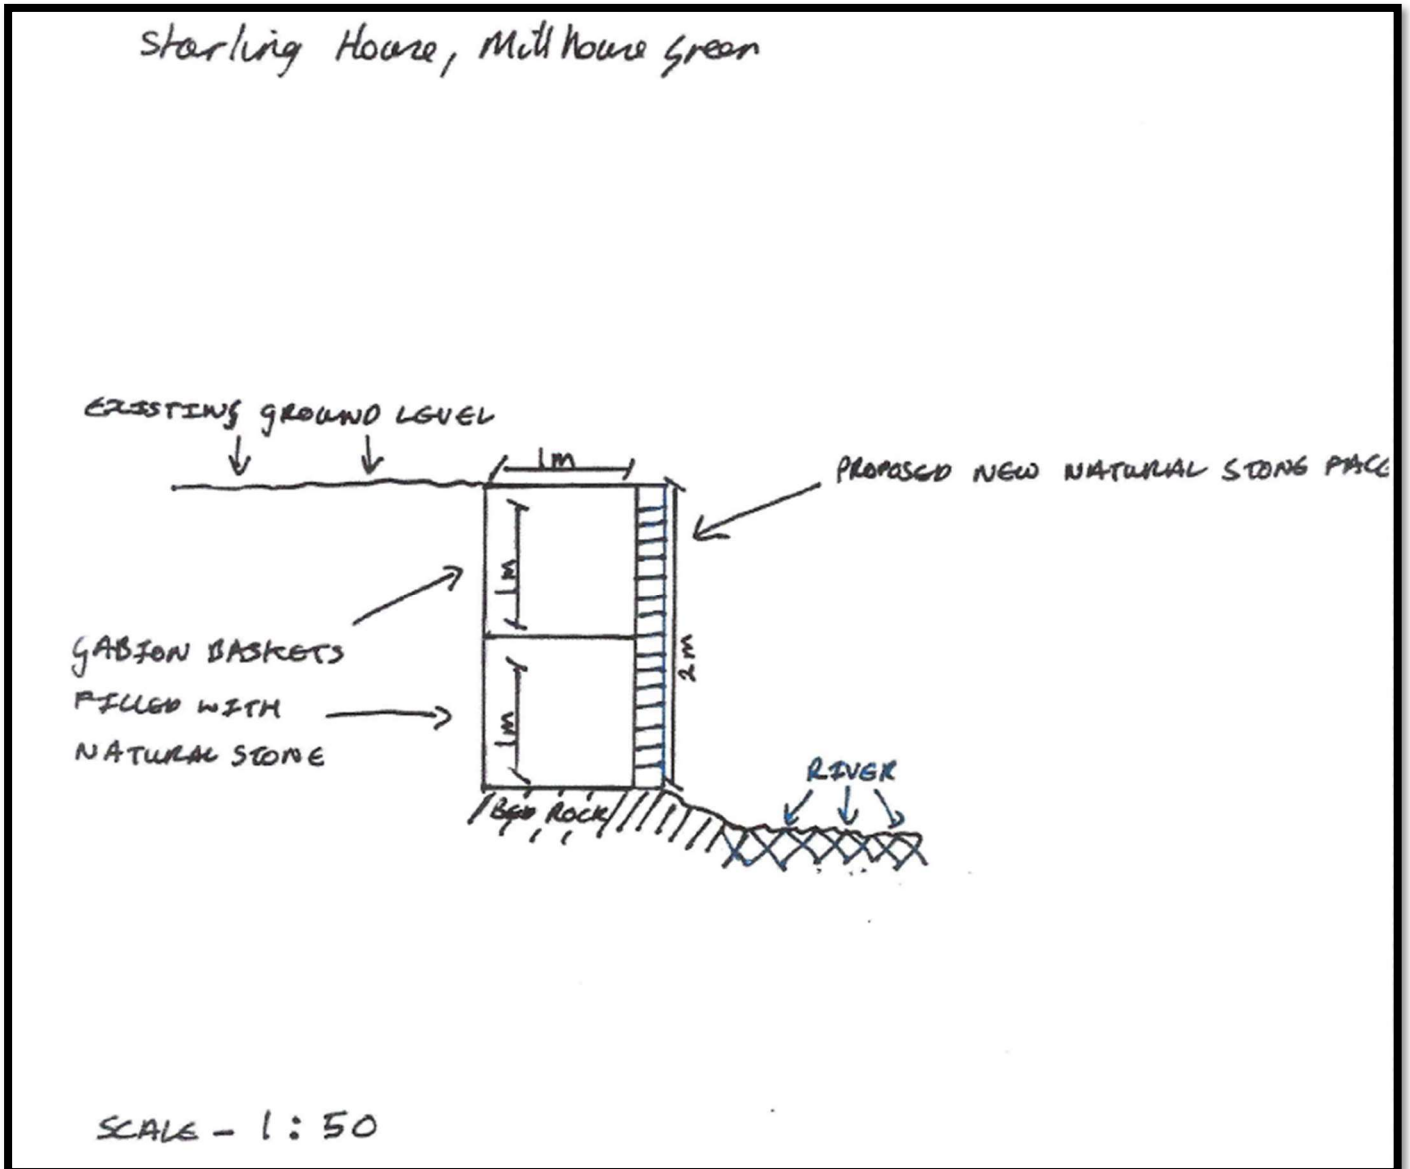 Starling House, Millhouse Green
EXISTING GROUND LEVEL
1m
PROPOSED NEW NATURAL STONE FACE
1m
GABION BASKETS
FILLED WITH
NATURAL STONE
2m
1m
RIVER
BED ROCK
SCALE - 1:50